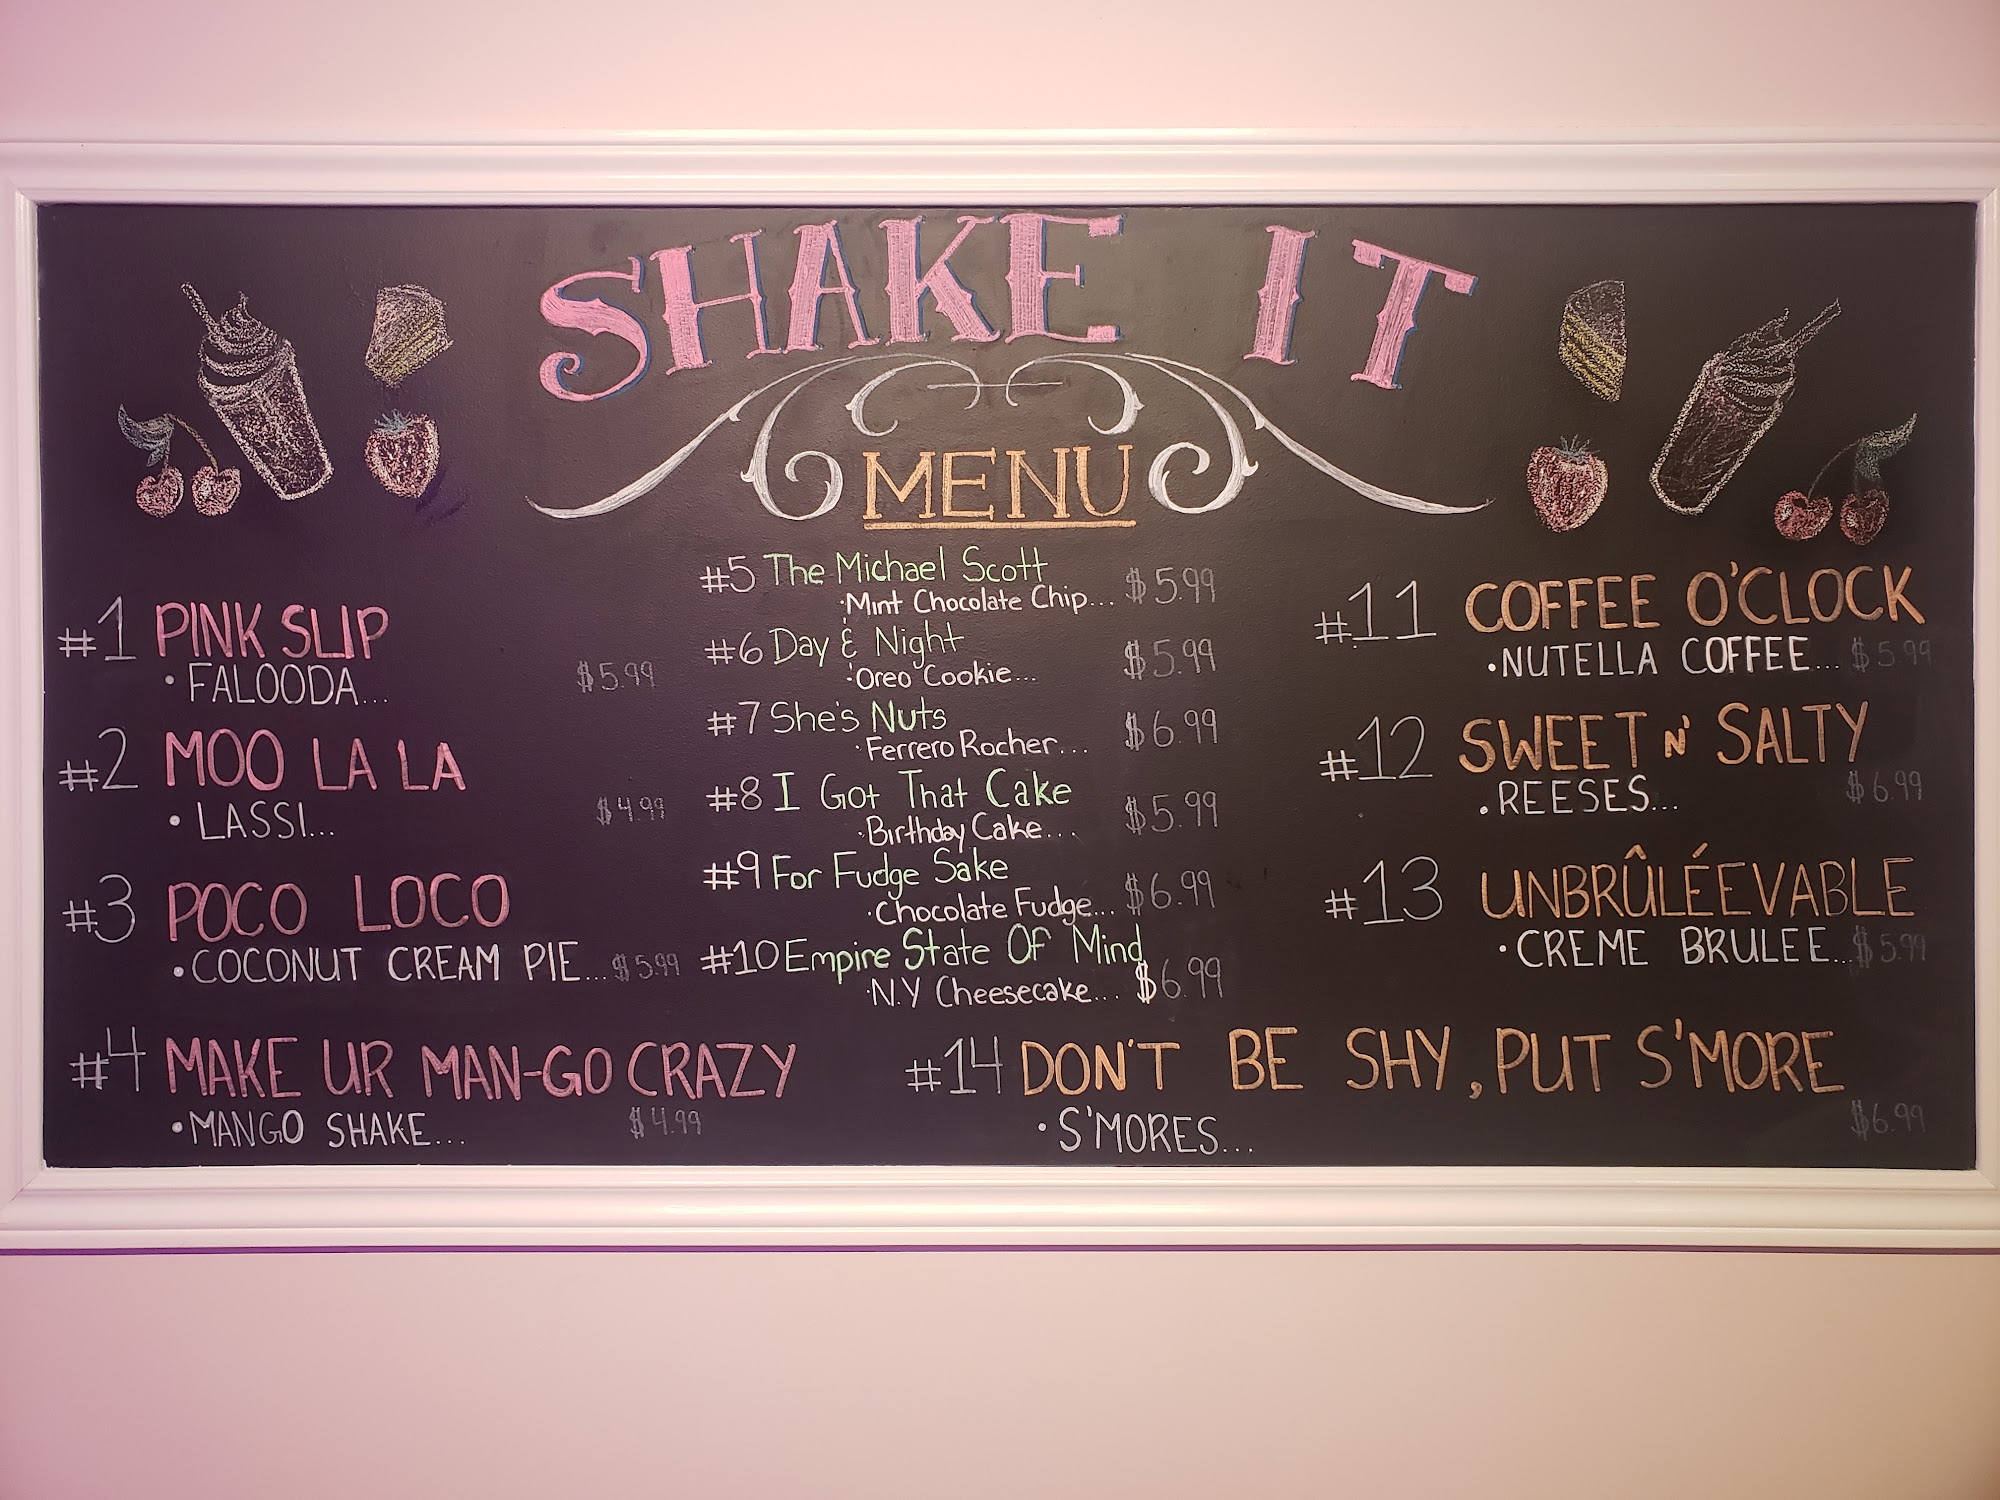 SHAKE IT
MENU
#1 PINK SLIP
·FALOODA... $5.99
#2 MOO LA LA
·LASSI... $4.99
#3 POCO LOCO
·COCONUT CREAM PIE... $5.99
#4 MAKE UR MAN-GO CRAZY
·MANGO SHAKE... $4.99
#5 The Michael Scott
·Mint Chocolate Chip... $5.99
#6 Day & Night
·Oreo Cookie... $5.99
#7 She's Nuts
·Ferrero Rocher... $6.99
#8 I Got That Cake
·Birthday Cake... $5.99
#9 For Fudge Sake
·Chocolate Fudge... $6.99
#10 Empire State Of Mind
·N.Y Cheesecake... $6.99
#11 COFFEE O'CLOCK
·NUTELLA COFFEE... $5.99
#12 SWEET N' SALTY
·REESES... $6.99
#13 UNBRÛLÉEVABLE
·CREME BRULEE... $5.99
#14 DON'T BE SHY, PUT S'MORE
·S'MORES... $6.99